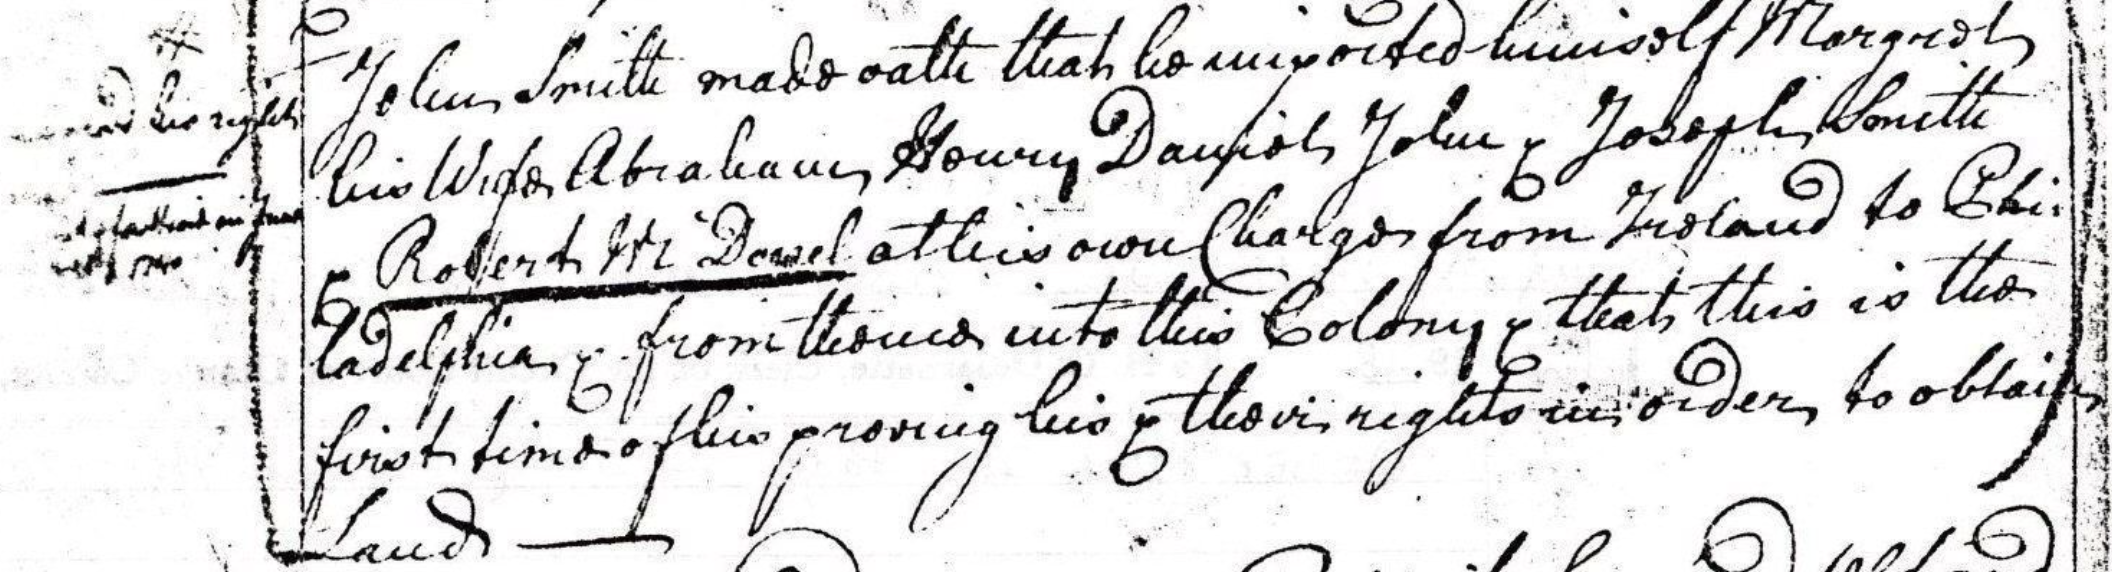 his rights
John Smith made oath that he imported himself Margret
his Wife Abraham Henry Daniel John & Joseph Smith
& Robert Mc Dowel at his own Charge from Ireland to Phi-
ladelphia & from thence into this Colony & that this is the
first time of his proving his & their rights in order to obtain
Land